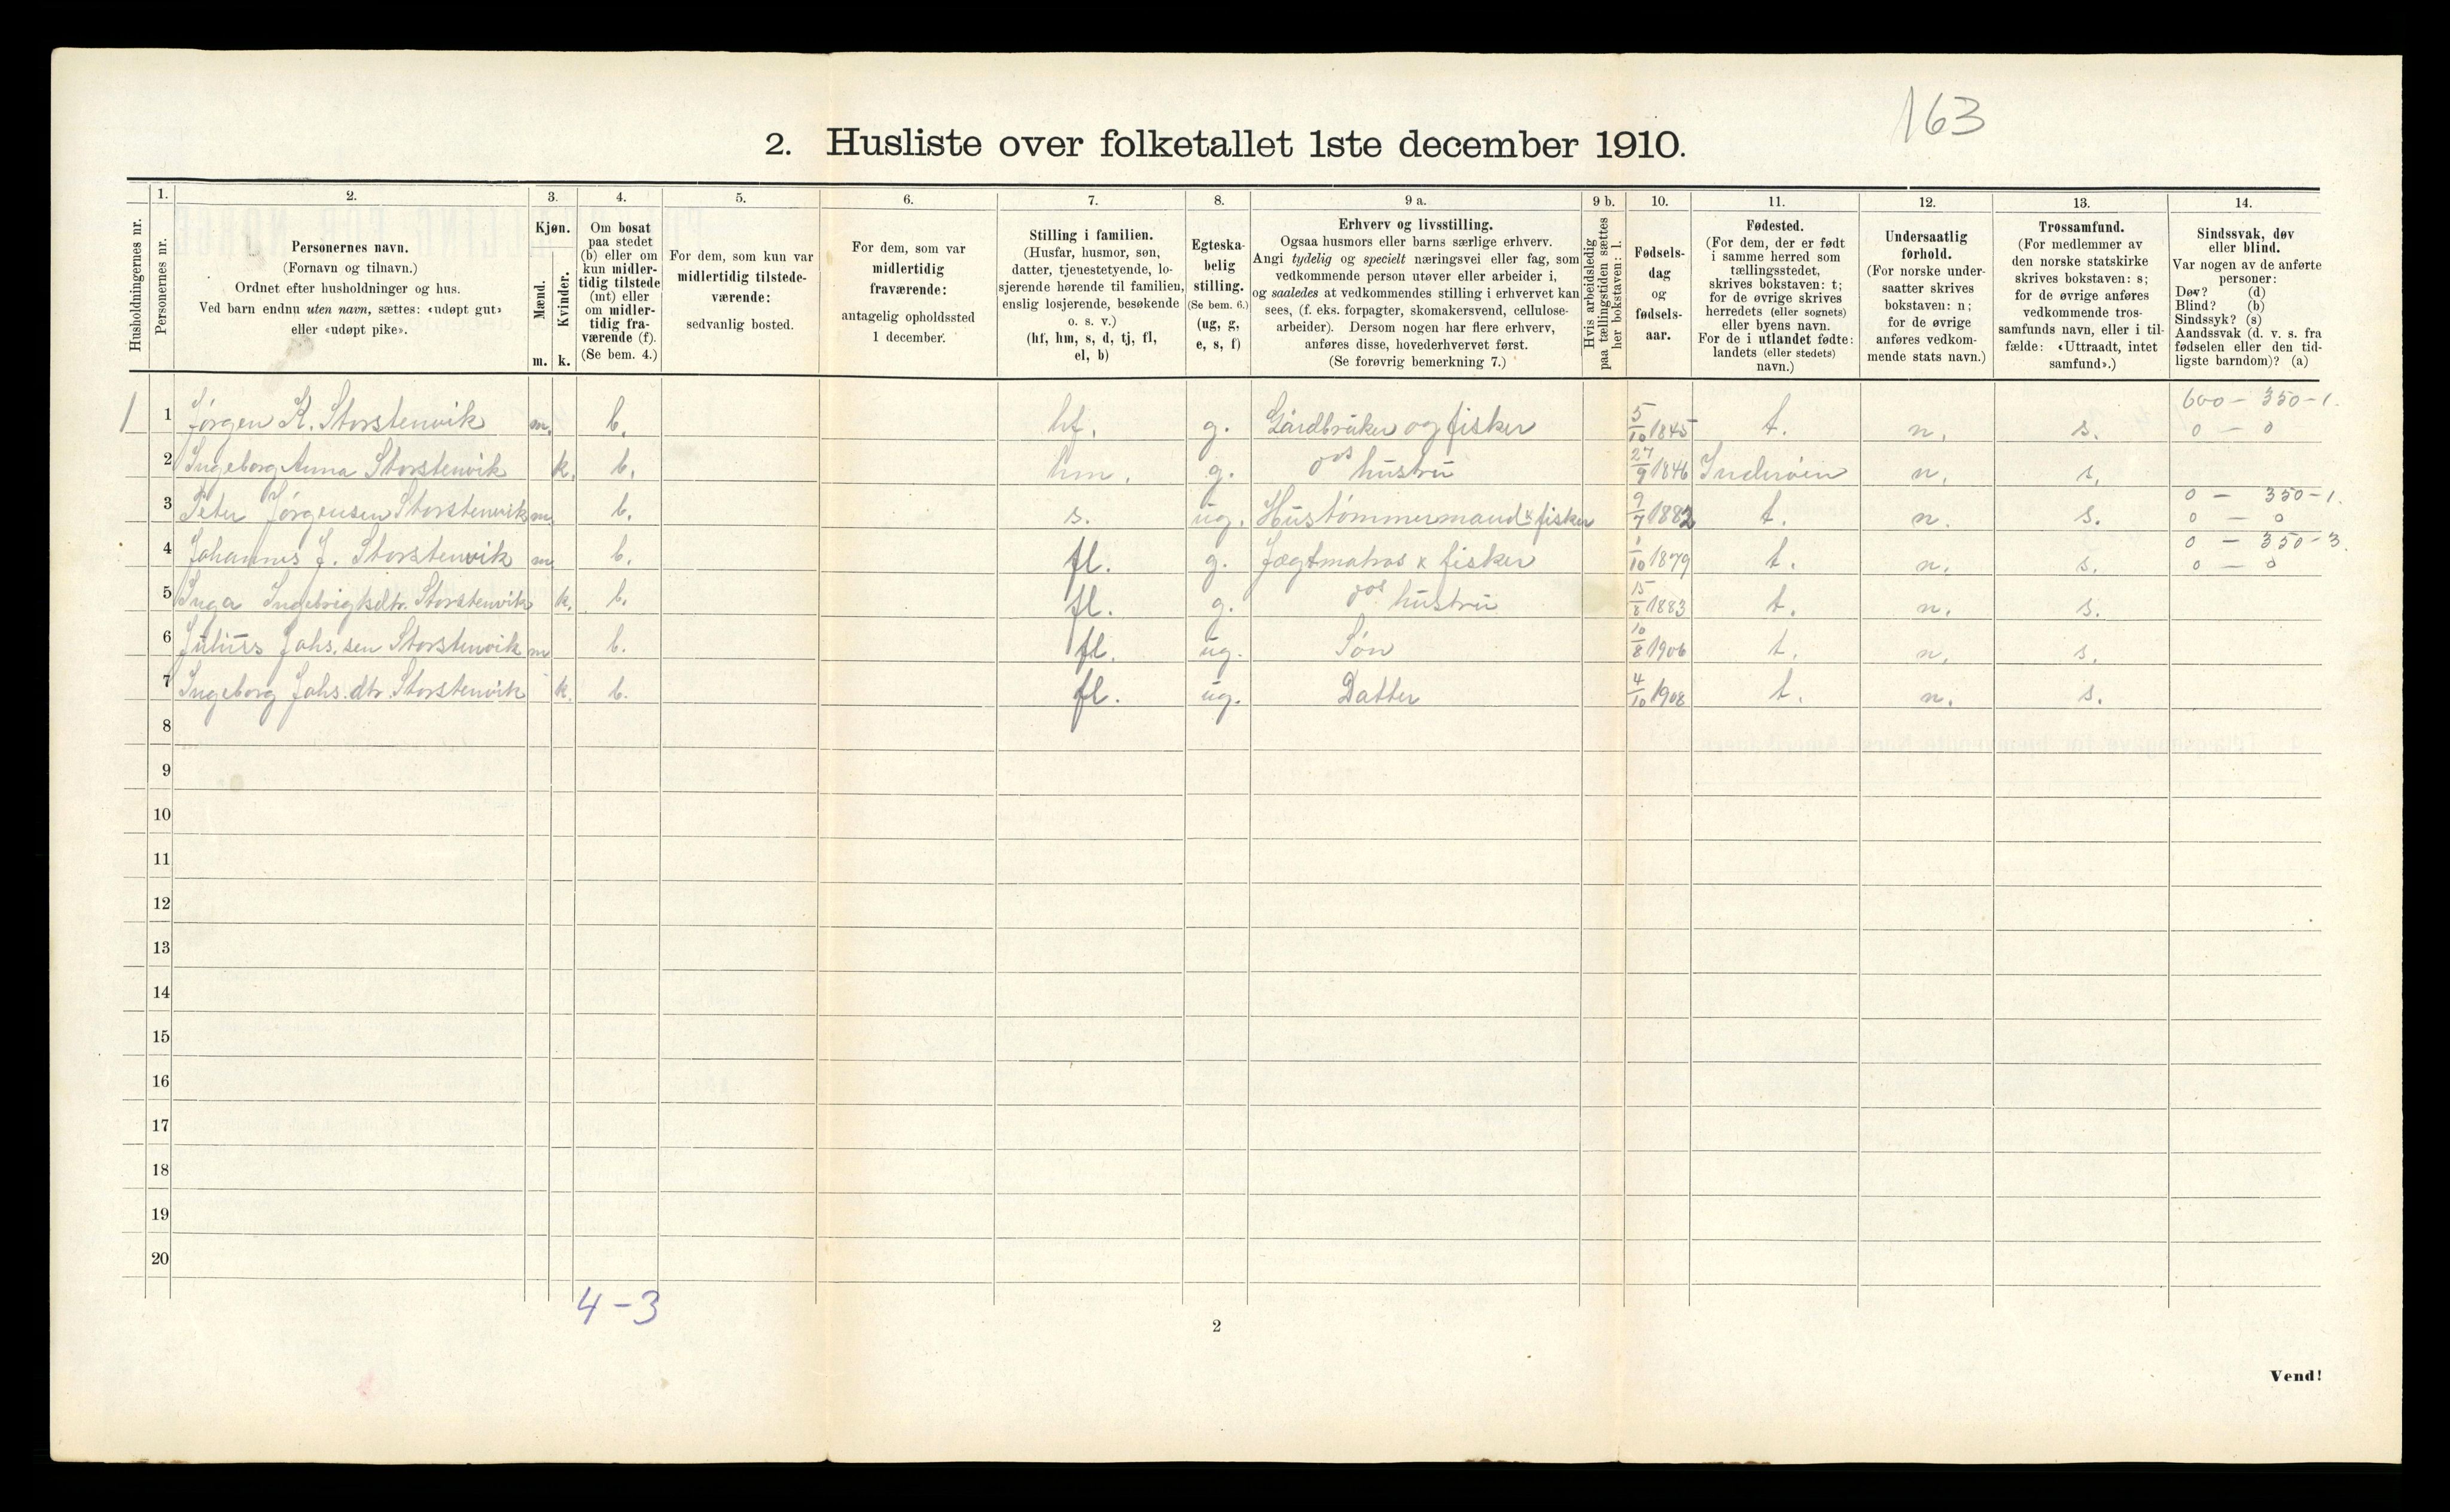 163
2. Husliste over folketallet 1ste december 1910.
Husholdningernes nr.
1.
Personernes nr.
2.
Personernes navn.
(Fornavn og tilnavn.)
Ordnet efter husholdninger og hus.
Ved barn endnu uten navn, sættes: «udøpt gut»
eller «udøpt pike».
3.
Kjøn.
Mænd.
Kvinder.
m. k.
4.
Om bosat
paa stedet
(b) eller om
kun midler-
tidig tilstede
(mt) eller
om midler-
tidig fra-
værende (f).
(Se bem. 4.)
5.
For dem, som kun var
midlertidig tilstede-
værende:
sedvanlig bosted.
6.
For dem, som var
midlertidig
fraværende:
antagelig opholdssted
1 december.
7.
Stilling i familien.
(Husfar, husmor, søn,
datter, tjenestetyende, lo-
sjerende hørende til familien,
enslig losjerende, besøkende
o. s. v.)
(hf, hm, s, d, tj, fl,
el, b)
8.
Egteska-
belig
stilling.
(Se bem. 6.)
(ug, g,
e, s, f)
9 a.
Erhverv og livsstilling.
Ogsaa husmors eller barns særlige erhverv.
Angi tydelig og specielt næringsvei eller fag, som
vedkommende person utøver eller arbeider i,
og saaledes at vedkommendes stilling i erhvervet kan
sees, (f. eks. forpagter, skomakersvend, cellulose-
arbeider). Dersom nogen har flere erhverv,
anføres disse, hovederhvervet først.
(Se forøvrig bemerkning 7.)
9 b.
Hvis arbeidsledig
paa tællingstiden sættes
her bokstaven: l.
10.
Fødsels-
dag
og
fødsels-
aar.
11.
Fødested.
(For dem, der er født
i samme herred som
tællingsstedet,
skrives bokstaven: t;
for de øvrige skrives
herredets (eller sognets)
eller byens navn.
For de i utlandet fødte:
landets (eller stedets)
navn.)
12.
Undersaatlig
forhold.
(For norske under-
saatter skrives
bokstaven: n;
for de øvrige
anføres vedkom-
mende stats navn.)
13.
Trossamfund.
(For medlemmer av
den norske statskirke
skrives bokstaven: s;
for de øvrige anføres
vedkommende tros-
samfunds navn, eller i til-
fælde: «Uttraadt, intet
samfund».)
14.
Sindssvak, døv
eller blind.
Var nogen av de anførte
personer:
Døv? (d)
Blind? (b)
Sindssyk? (s)
Aandssvak (d. v. s. fra
fødselen eller den tid-
ligste barndom)? (a)
600 – 350 – 1.
1 1 Jørgen K. Storstenvik m. b. hf. g. Gårdbruker og fisker 5/10 1845 t. n. s. 0 – 0
2 Ingeborg Anna Storstenvik k. b. hm. g. hustru 27/9 1846 Inderöen n. s.
0 – 350 – 1.
3 Peter Jørgensen Storstenvik m. b. s. ug. Hustömmermand x fisker 9/7 1882 t. n. s. 0 – 0
0 – 350 – 3.
4 Johannes J. Storstenvik m b. fl. g. Jægtmatros x fisker 1/10 1879 t. n. s. 0 – 0
5 Inga Ingebrigtsdtr. Storstenvik k. b. fl. g. hustru 15/8 1883 t. n. s.
6 Julius Johs.sen Storstenvik m b. fl. ug. Søn 10/8 1906 t. n. s.
7 Ingeborg Johs.dtr. Storstenvik k. b. fl. ug. Datter 4/10 1908 t. n. s.
8
9
10
11
12
13
14
15
16
17
18
19
20
4 – 3
2
Vend!